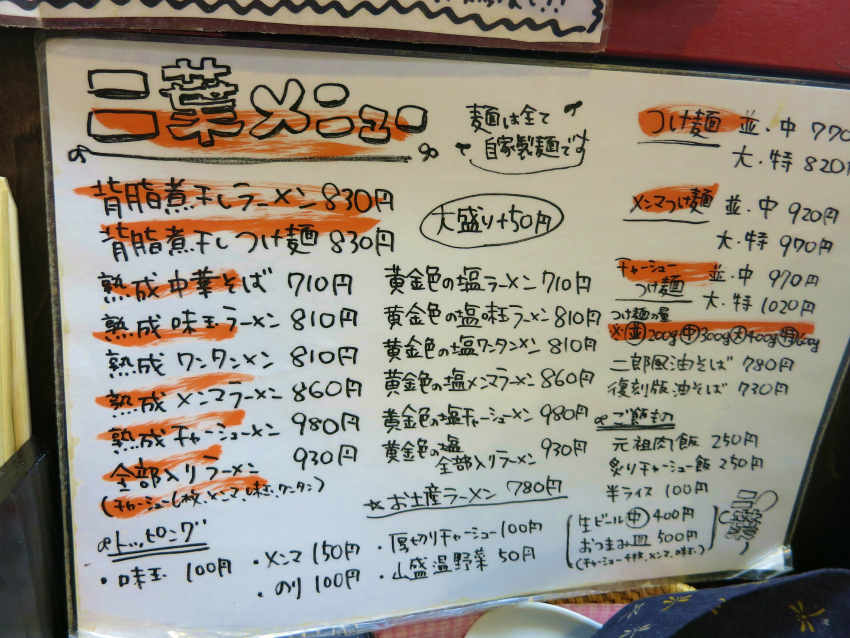 二葉メニュー
麺は全て
自家製麺です
背脂煮干しラーメン 830円
背脂煮干しつけ麺 830円
大盛り+50円
熟成中華そば 710円
熟成味玉ラーメン 810円
熟成ワンタンメン 810円
熟成メンマラーメン 860円
熟成チャーシューメン 980円
全部入りラーメン 930円
(チャーシュー1枚、メンマ、味玉、ワンタン)
黄金色の塩ラーメン 710円
黄金色の塩味玉ラーメン 810円
黄金色の塩ワンタンメン 810円
黄金色の塩メンマラーメン 860円
黄金色の塩チャーシューメン 980円
黄金色の塩
全部入りラーメン 930円
☆お土産ラーメン 780円
トッピング
・味玉 100円
・メンマ 150円
・のり 100円
・厚切りチャーシュー 100円
・山盛温野菜 50円
つけ麺 並・中 770
大・特 820円
メンマつけ麺 並・中 920円
大・特 970円
チャーシュー
つけ麺 並・中 970円
大・特 1020円
つけ麺の量
※並200g 中300g 大400g 特600g
二郎風油そば 780円
復刻版油そば 730円
ご飯もの
元祖肉飯 250円
炙りチャーシュー飯 250円
半ライス 100円
生ビール中 400円
おつまみ皿 500円
(チャーシュー4枚、メンマ、味玉)
二葉